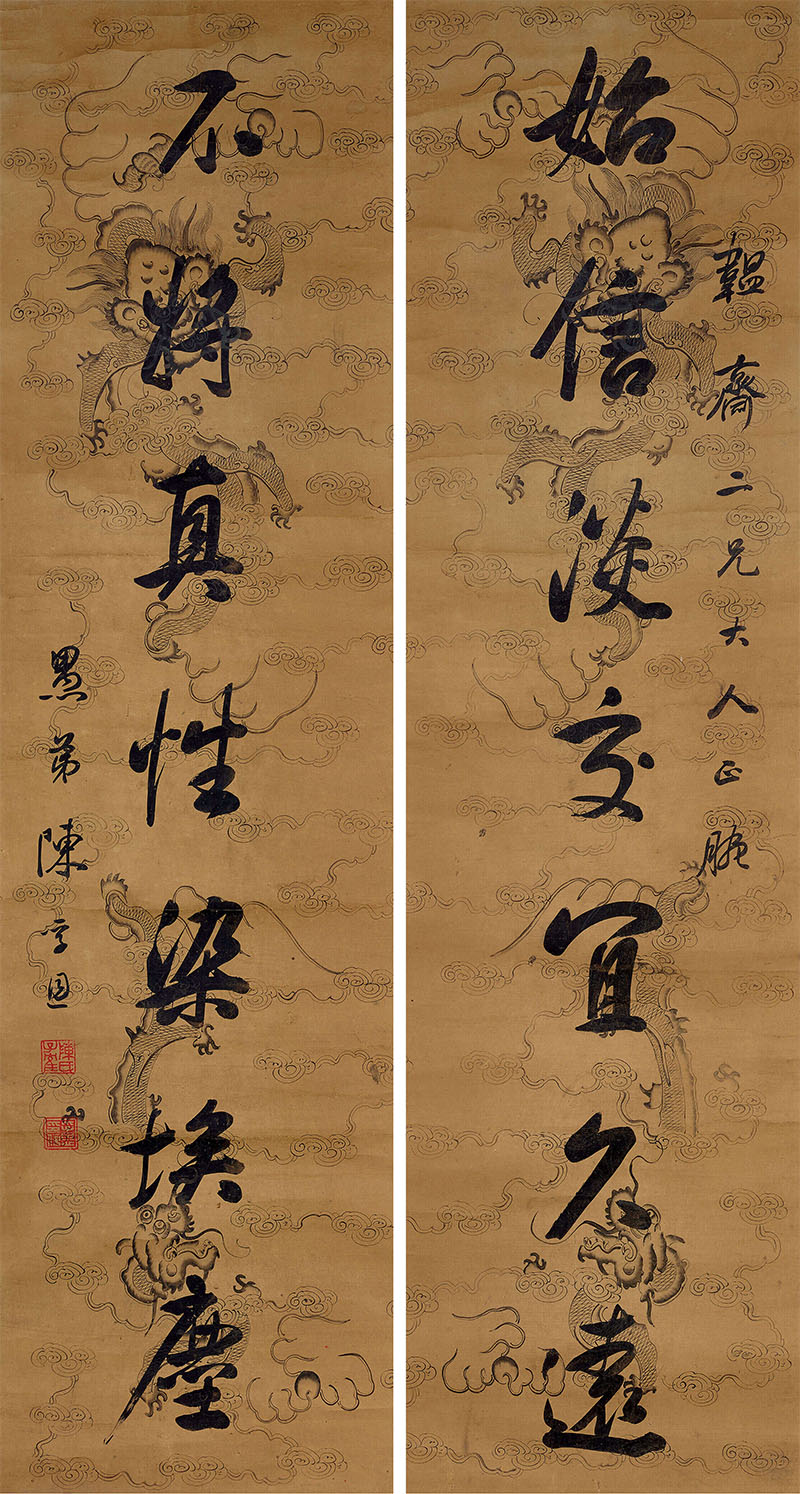 韞齋二兄大人正腕
始信淡交宜久遠
不將真性染埃塵
愚弟陳孚恩